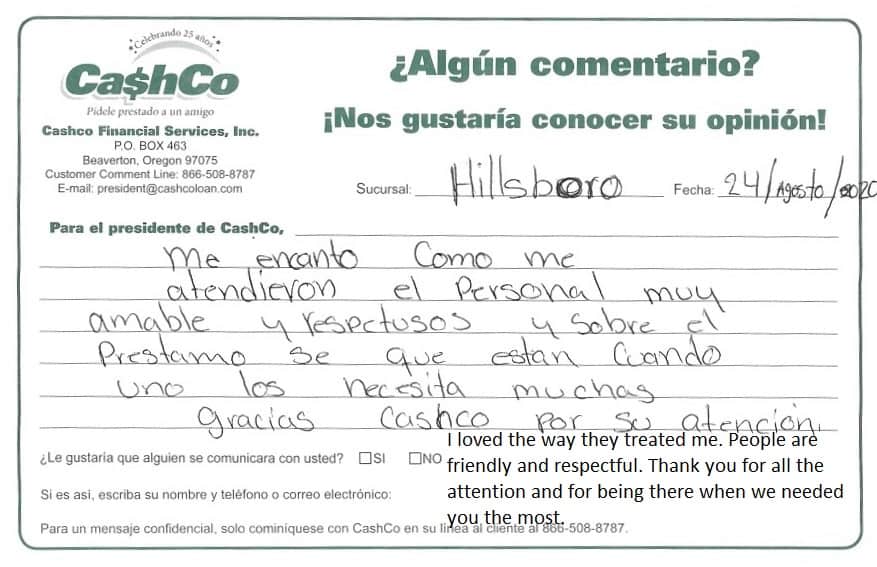 Celebrando 25 años
Ca$hCo
Pídele prestado a un amigo
Cashco Financial Services, Inc.
P.O. BOX 463
Beaverton, Oregon 97075
Customer Comment Line: 866-508-8787
E-mail: president@cashcoloan.com
¿Algún comentario?
¡Nos gustaría conocer su opinión!
Sucursal: Hillsboro Fecha: 24/Agosto/2020
Para el presidente de CashCo,
Me encanto Como me
atendieron el Personal muy
amable y respctusos y Sobre el
Prestamo Se que estan Cuando
uno los necesita muchas
gracias Cashco por su atención.
¿Le gustaria que alguien se comunicara con usted? □SI □NO
Si es asi, escriba su nombre y teléfono o correo electrónico:
Para un mensaje confidencial, solo cominíquese con CashCo en su línea al cliente al 866-508-8787.
I loved the way they treated me. People are
friendly and respectful. Thank you for all the
attention and for being there when we needed
you the most.